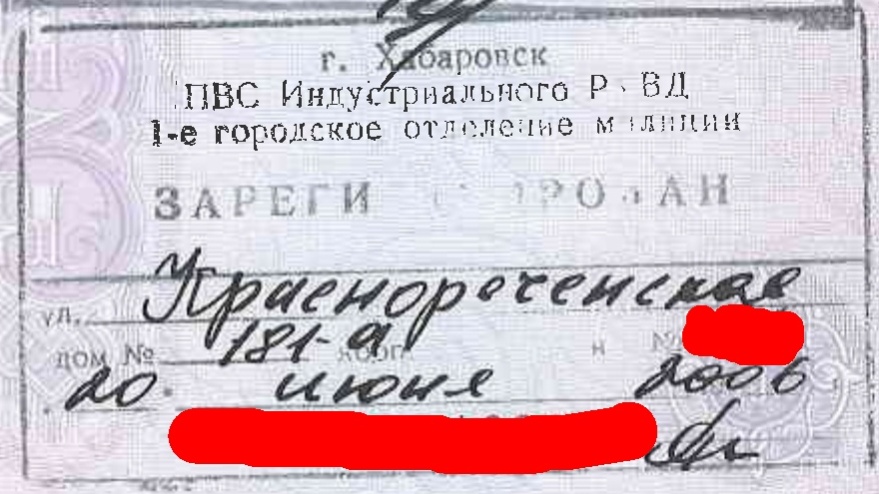 г. Хабаровск
ПВС Индустриального РОВД
1-е городское отделение милиции
ЗАРЕГИСТРИРОВАН
ул. Краснореченская
дом № 181-а корп. №
20 июня 2006